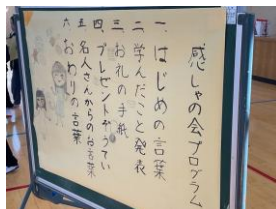 感しゃの会プログラム
一、はじめの言葉
二、学んだこと発表
三、お礼の手紙
四、プレゼントぞうてい
五、名人さんからのお言葉
六、おわりの言葉